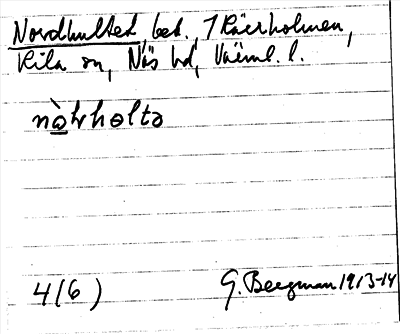 Nordhultet, bet., 1 Räcrholmen,
Kila sn, Näs hd, Värml. l.
nòrholtə
4(6)
G. Bergman 1913-14